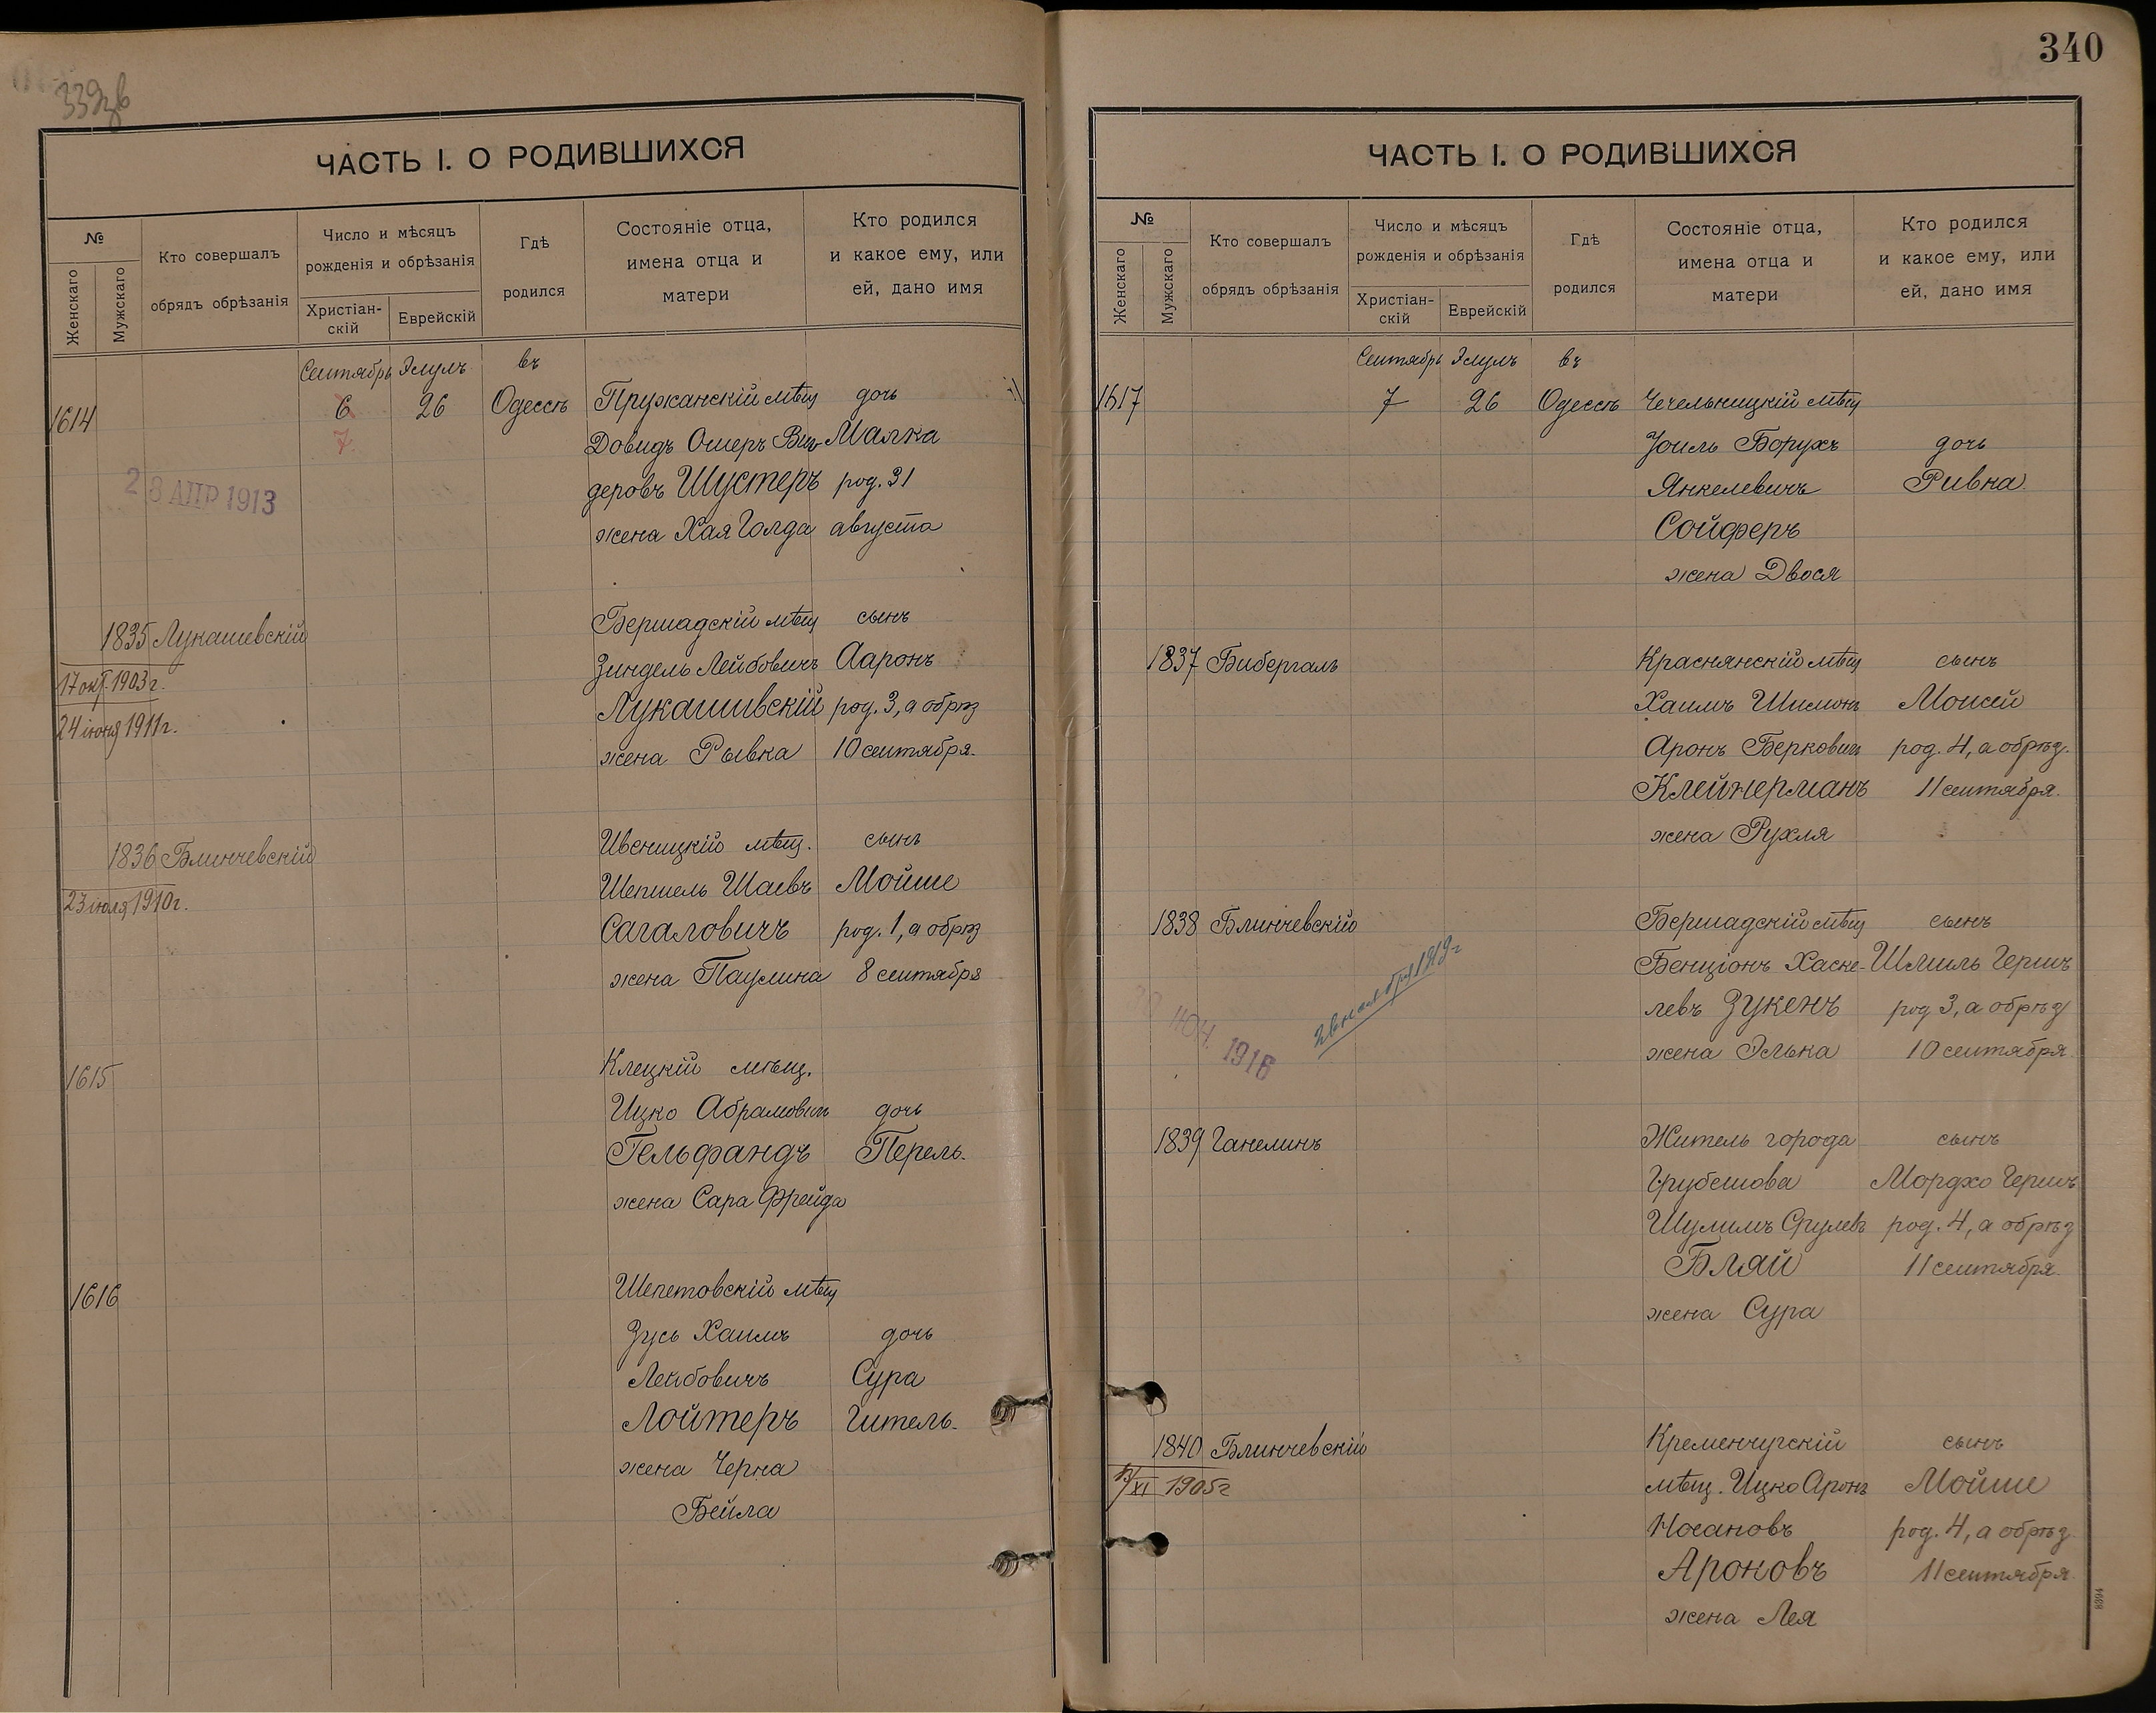 340
ЧАСТЬ I. О РОДИВШИХСЯ
№
Женскаго
Мужскаго
Кто совершалъ
обрядъ обрѣзанія
Число и мѣсяцъ
рожденія и обрѣзанія
Христіан-
скій
Еврейскій
Гдѣ
родился
Состояніе отца,
имена отца и
матери
Кто родился
и какое ему, или
ей, дано имя
Сентябрь Элулъ въ
1614 6 26 Одессѣ Пружанскій мѣщ дочь
7 Довидъ Ошеръ Виг- Малка
28 АПР 1913
деровъ Шустеръ род. 31
жена Хая Голда августа
1835 Лукашевскій Бершадскій мѣщ сынъ
17 окт. 1903 г. Зиндель Лейбовичъ Ааронъ
24 іюня 1911 г. Лукашивскій род. 3, а обрѣз
жена Рывка 10 сентября.
1836 Блинчевскій Ивеницкій мѣщ. сынъ
23 іюля 1910 г. Шепшель Шаевъ Мойше
Сагаловичъ род. 1, а обрѣз
жена Паулина 8 сентября
1615 Клецкій мѣщ.
Ицко Абрамовичъ дочь
Гельфандъ Перель.
жена Сара Фрейда
1616 Шепетовскій мѣщ
Зусь Хаимъ дочь
Лейбовичъ Сура
Лойтеръ Гитель.
жена Черна
Бейла
ЧАСТЬ I. О РОДИВШИХСЯ
№
Женскаго
Мужскаго
Кто совершалъ
обрядъ обрѣзанія
Число и мѣсяцъ
рожденія и обрѣзанія
Христіан-
скій
Еврейскій
Гдѣ
родился
Состояніе отца,
имена отца и
матери
Кто родился
и какое ему, или
ей, дано имя
Сентябрь Элулъ въ
1617 7 26 Одессѣ Чечельницкій мѣщ
Іоиль Борухъ дочь
Янкелевичъ Ривка
Сойферъ
жена Двося
1837 Бибергаль Краснянскій мѣщ сынъ
Хаимъ Шимонъ Моисей
Аронъ Берковичъ род. 4, а обрѣз.
Клейнерманъ 11 сентября.
жена Рухля
1838 Блинчевскій Бершадскій мѣщ сынъ
Бенціонъ Хаске- Шмиль Гершъ
левъ Зукенъ род 3, а обрѣз
ІЮН. 1916
жена Элька 10 сентября.
1839 Ганелинъ Житель города сынъ
Грубешова Мордхо Гершъ
Шулимъ Срулевъ род. 4, а обрѣз
Бляй 11 сентября.
жена Сура
1840 Блинчевскій Кременчугскій сынъ
XI 1905 г мѣщ. Ицко Аронъ Мойше
Носановъ род. 4, а обрѣз.
Ароновъ 11 сентября.
жена Лея